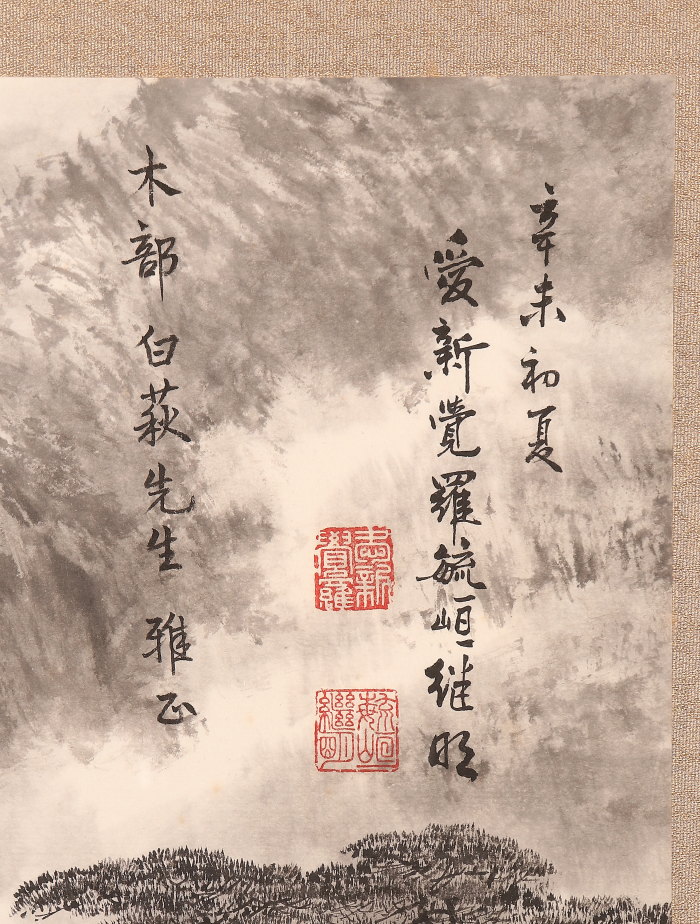 辛未初夏
愛新覺羅毓峘继明
木部白萩先生 雅正
愛新覺羅
毓峘繼明